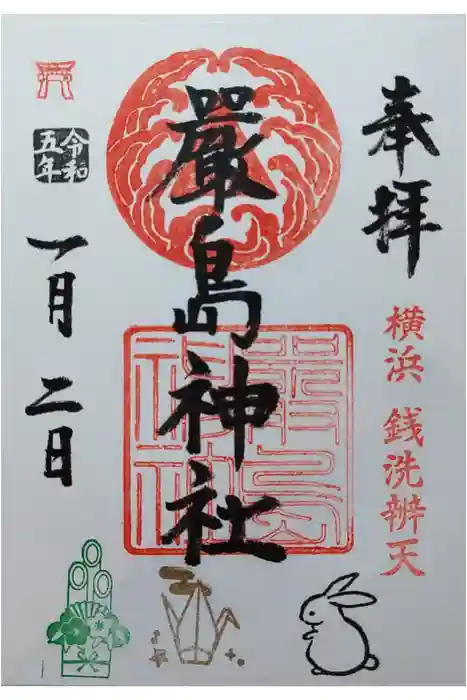 奉拝
横浜 銭洗辨天
嚴島神社
令和
五年
一月二日